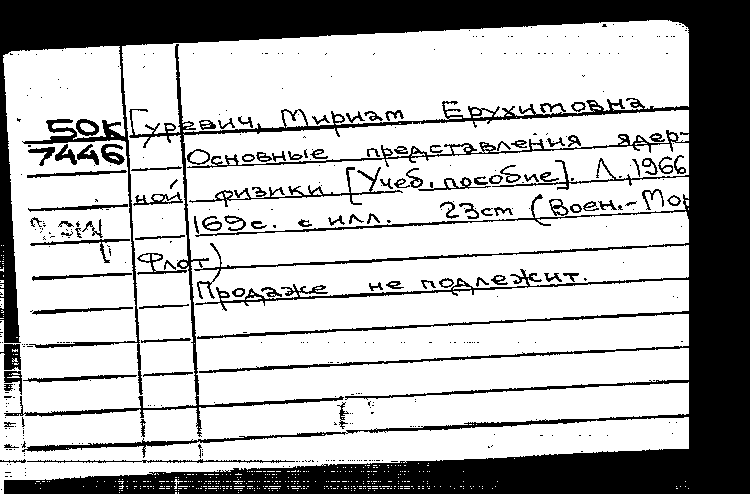 50К Гуревич, Мириам Ерухимовна.
7446 Основные представления ядер-
ной физики. [Учеб. пособие]. Л., 1966
169 с. с илл. 23cm (Воен.-Мор
Флот)
Продаже не подлежит.